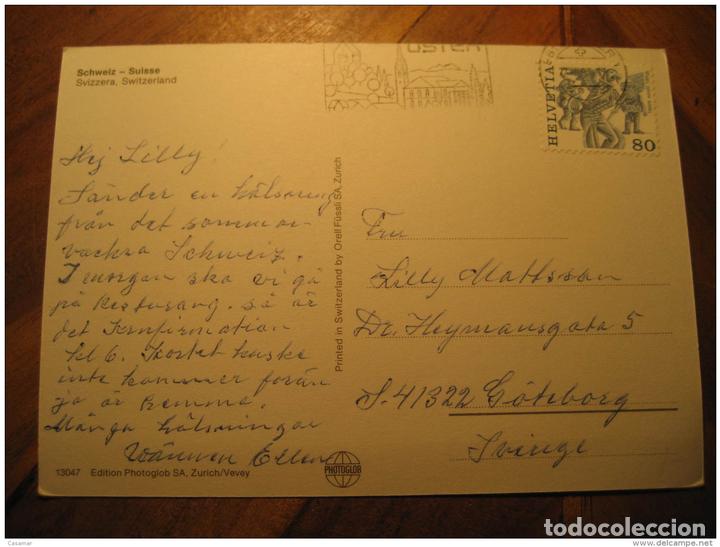 Schweiz – Suisse
Svizzera, Switzerland
USTER
HELVETIA
80
Hej Lilly!
Sänder en hälsning
från det sommar-
vackra Schweiz.
I morgon ska vi gå
på Resturang. så är
det Konfirmation
kl 6. Kortet kanske
inte kommer förän
ja är hemma.
Många hälsningar
Wännen Ellen
Fru
Lilly Mattsson
Dr. Heymansgata 5
S-41322 Göteborg
Sverige
Printed in Switzerland by Orell Füssli SA, Zurich
13047 Edition Photoglob SA, Zurich/Vevey
PHOTOGLOB
Casamar
todocoleccion
www.delcampe.net